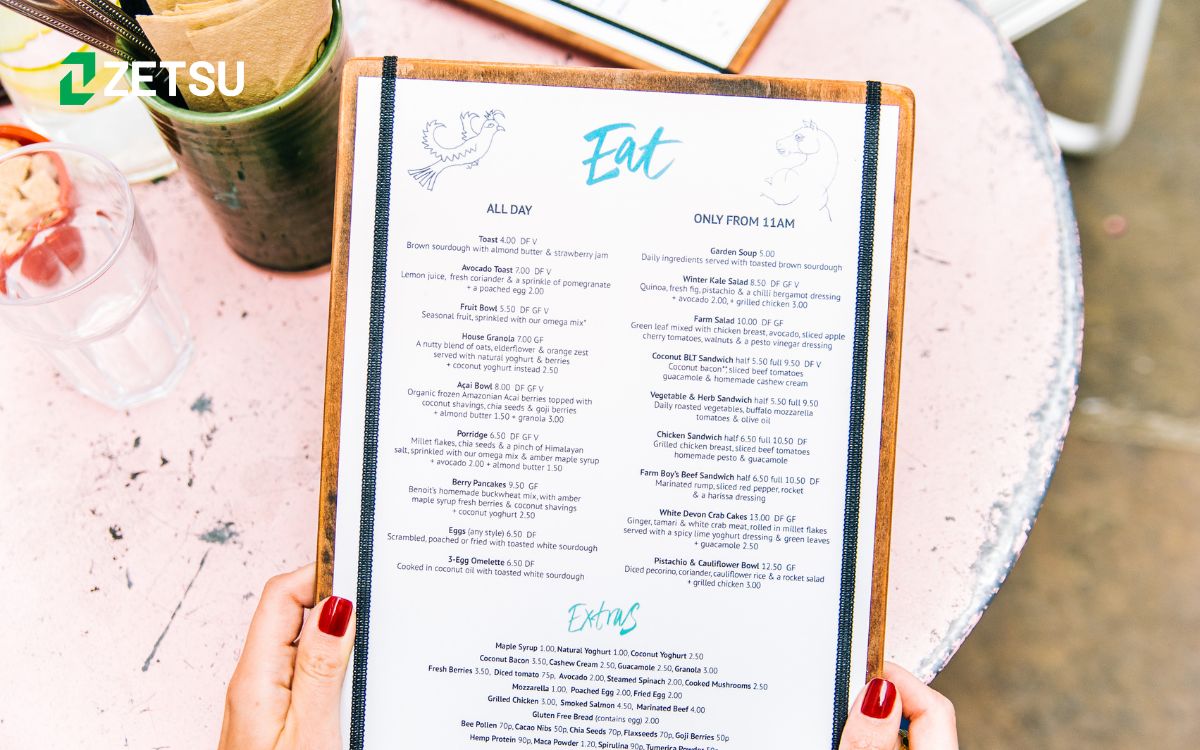 ZETSU
Eat
ALL DAY
Toast 4.00 DF V
Brown sourdough with almond butter & strawberry jam
Avocado Toast 7.00 DF V
Lemon juice, fresh coriander & a sprinkle of pomegranate
+ a poached egg 2.00
Fruit Bowl 5.50 DF GF V
Seasonal fruit, sprinkled with our omega mix*
House Granola 7.00 GF
A nutty blend of oats, elderflower & orange zest
served with natural yoghurt & berries
+ coconut yoghurt instead 2.50
Açai Bowl 8.00 DF GF V
Organic frozen Amazonian Acai berries topped with
coconut shavings, chia seeds & goji berries
+ almond butter 1.50 + granola 3.00
Porridge 6.50 DF GF V
Millet flakes, chia seeds & a pinch of Himalayan
salt, sprinkled with our omega mix & amber maple syrup
+ avocado 2.00 + almond butter 1.50
Berry Pancakes 9.50 GF
Benoit's homemade buckwheat mix, with amber
maple syrup fresh berries & coconut shavings
+ coconut yoghurt 2.50
Eggs (any style) 6.50 DF
Scrambled, poached or fried with toasted white sourdough
3-Egg Omelette 6.50 DF
Cooked in coconut oil with toasted white sourdough
ONLY FROM 11AM
Garden Soup 5.00
Daily ingredients served with toasted brown sourdough
Winter Kale Salad 8.50 DF GF V
Quinoa, fresh fig, pistachio & a chilli bergamot dressing
+ avocado 2.00, + grilled chicken 3.00
Farm Salad 10.00 DF GF
Green leaf mixed with chicken breast, avocado, sliced apple
cherry tomatoes, walnuts & a pesto vinegar dressing
Coconut BLT Sandwich half 5.50 full 9.50 DF V
Coconut bacon**, sliced beef tomatoes
guacamole & homemade cashew cream
Vegetable & Herb Sandwich half 5.50 full 9.50
Daily roasted vegetables, buffalo mozzarella
tomatoes & olive oil
Chicken Sandwich half 6.50 full 10.50 DF
Grilled chicken breast, sliced beef tomatoes
homemade pesto & guacamole
Farm Boy's Beef Sandwich half 6.50 full 10.50 DF
Marinated rump, sliced red pepper, rocket
& a harissa dressing
White Devon Crab Cakes 13.00 DF GF
Ginger, tamari & white crab meat, rolled in millet flakes
served with a spicy lime yoghurt dressing & green leaves
+ guacamole 2.50
Pistachio & Cauliflower Bowl 12.50 GF
Diced pecorino, coriander, cauliflower rice & a rocket salad
+ grilled chicken 3.00
Extras
Maple Syrup 1.00, Natural Yoghurt 1.00, Coconut Yoghurt 2.50
Coconut Bacon 3.50, Cashew Cream 2.50, Guacamole 2.50, Granola 3.00
Fresh Berries 3.50, Diced tomato 75p, Avocado 2.00, Steamed Spinach 2.00, Cooked Mushrooms 2.50
Mozzarella 1.00, Poached Egg 2.00, Fried Egg 2.00
Grilled Chicken 3.00, Smoked Salmon 4.50, Marinated Beef 4.00
Gluten Free Bread (contains egg) 2.00
Bee Pollen 70p, Cacao Nibs 50p, Chia Seeds 70p, Flaxseeds 70p, Goji Berries 50p
Hemp Protein 90p, Maca Powder 1.20, Spirulina 90p, Tumerica Powder 50p